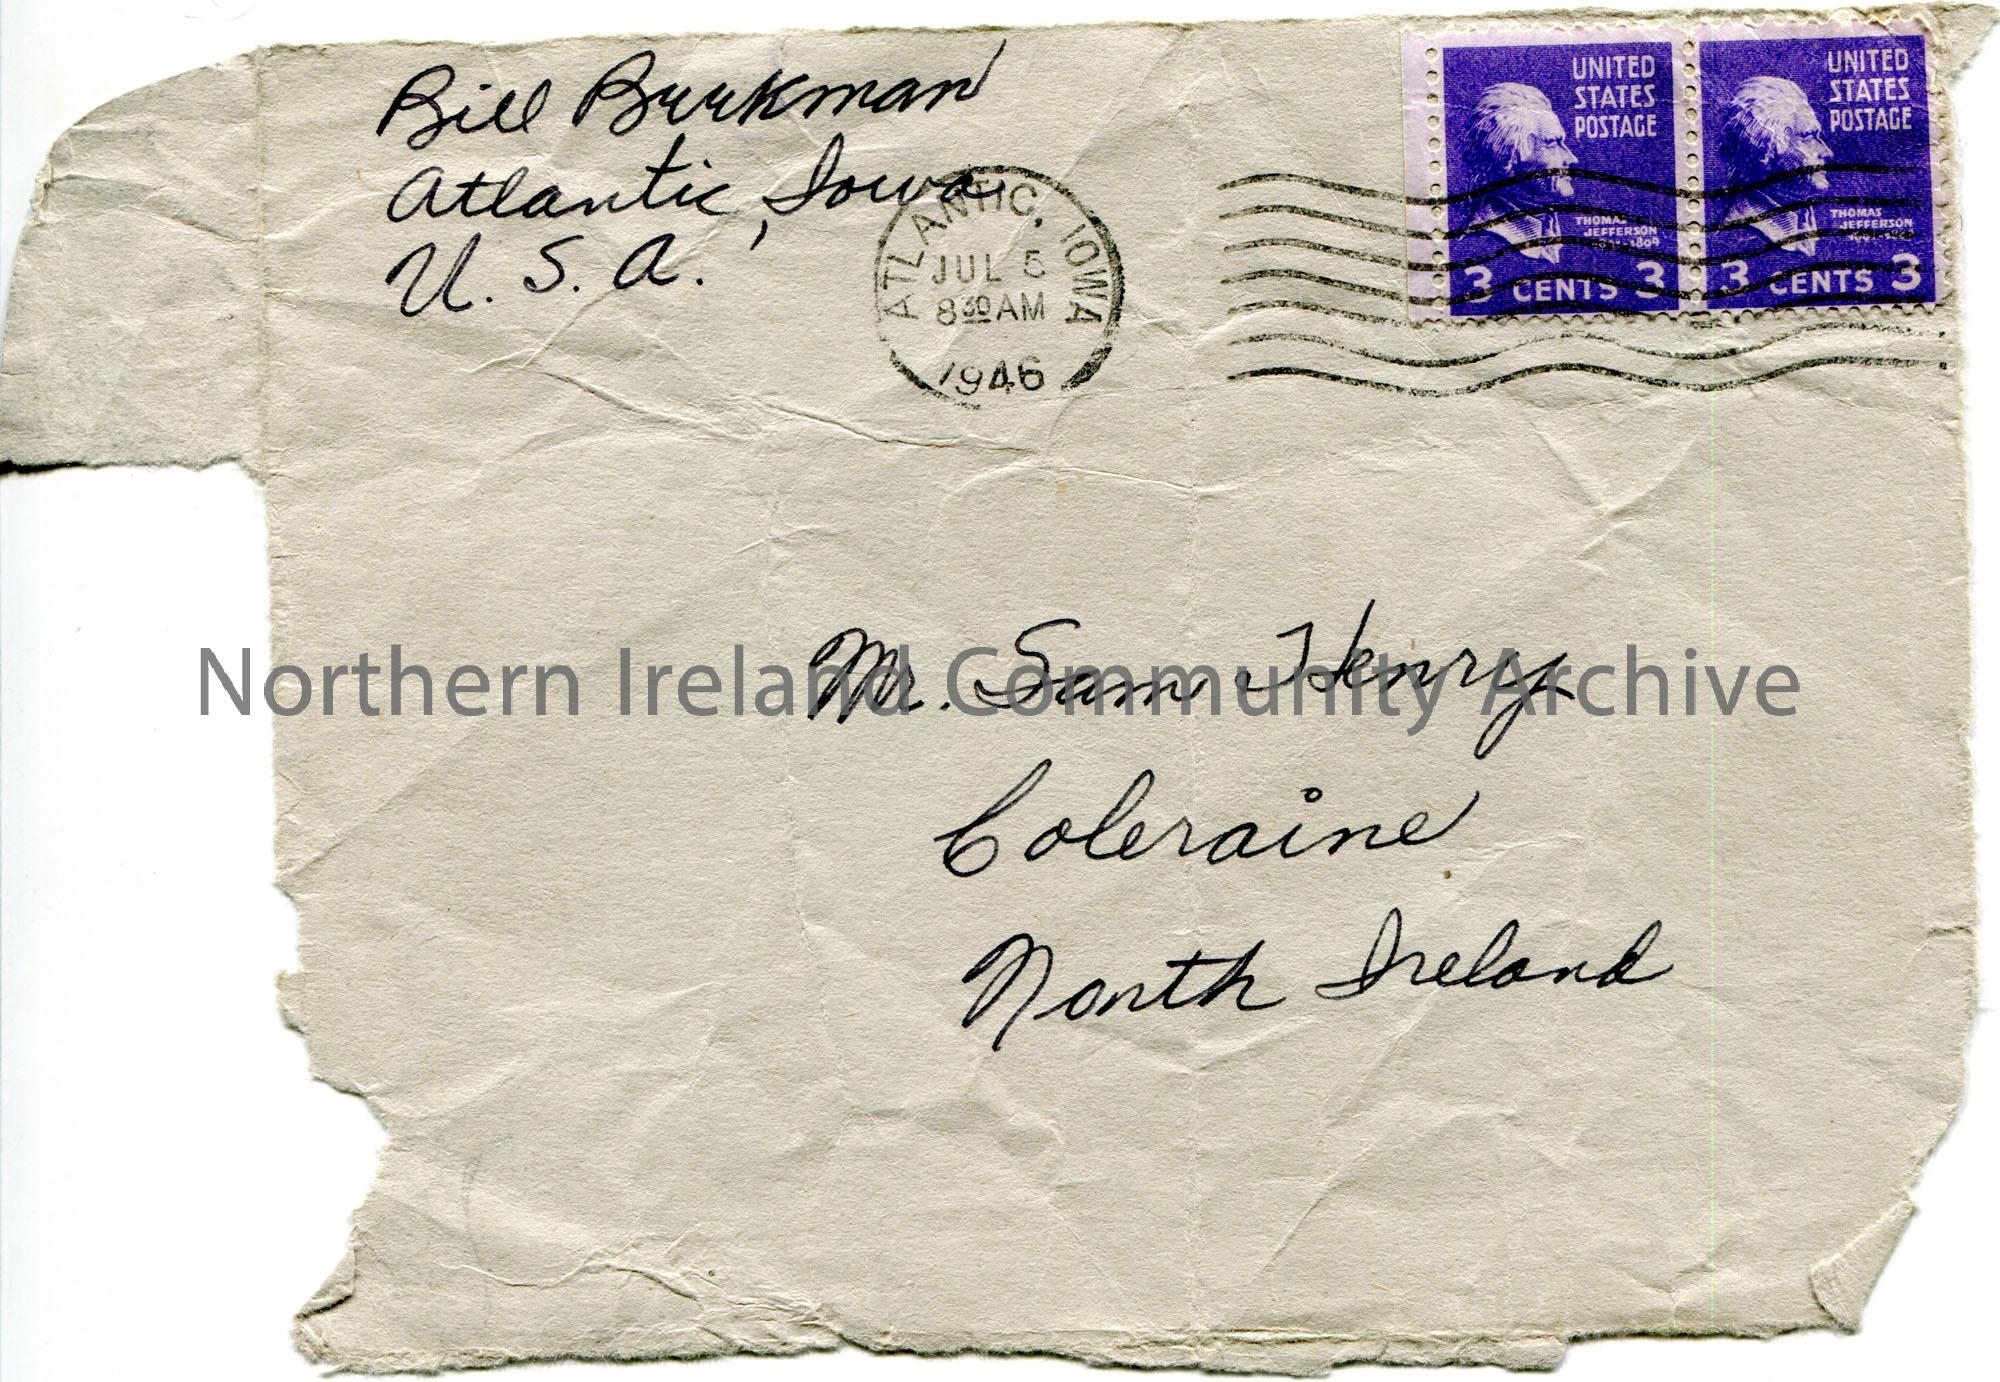 Bill Burkman
Atlantic, Iowa
U. S. A.
ATLANTIC, IOWA
JUL 5
8 30 AM
1946
UNITED
STATES
POSTAGE
THOMAS
JEFFERSON
3 CENTS 3
UNITED
STATES
POSTAGE
THOMAS
JEFFERSON
3 CENTS 3
Mr. Sam Henry
Coleraine
North Ireland
Northern Ireland Community Archive